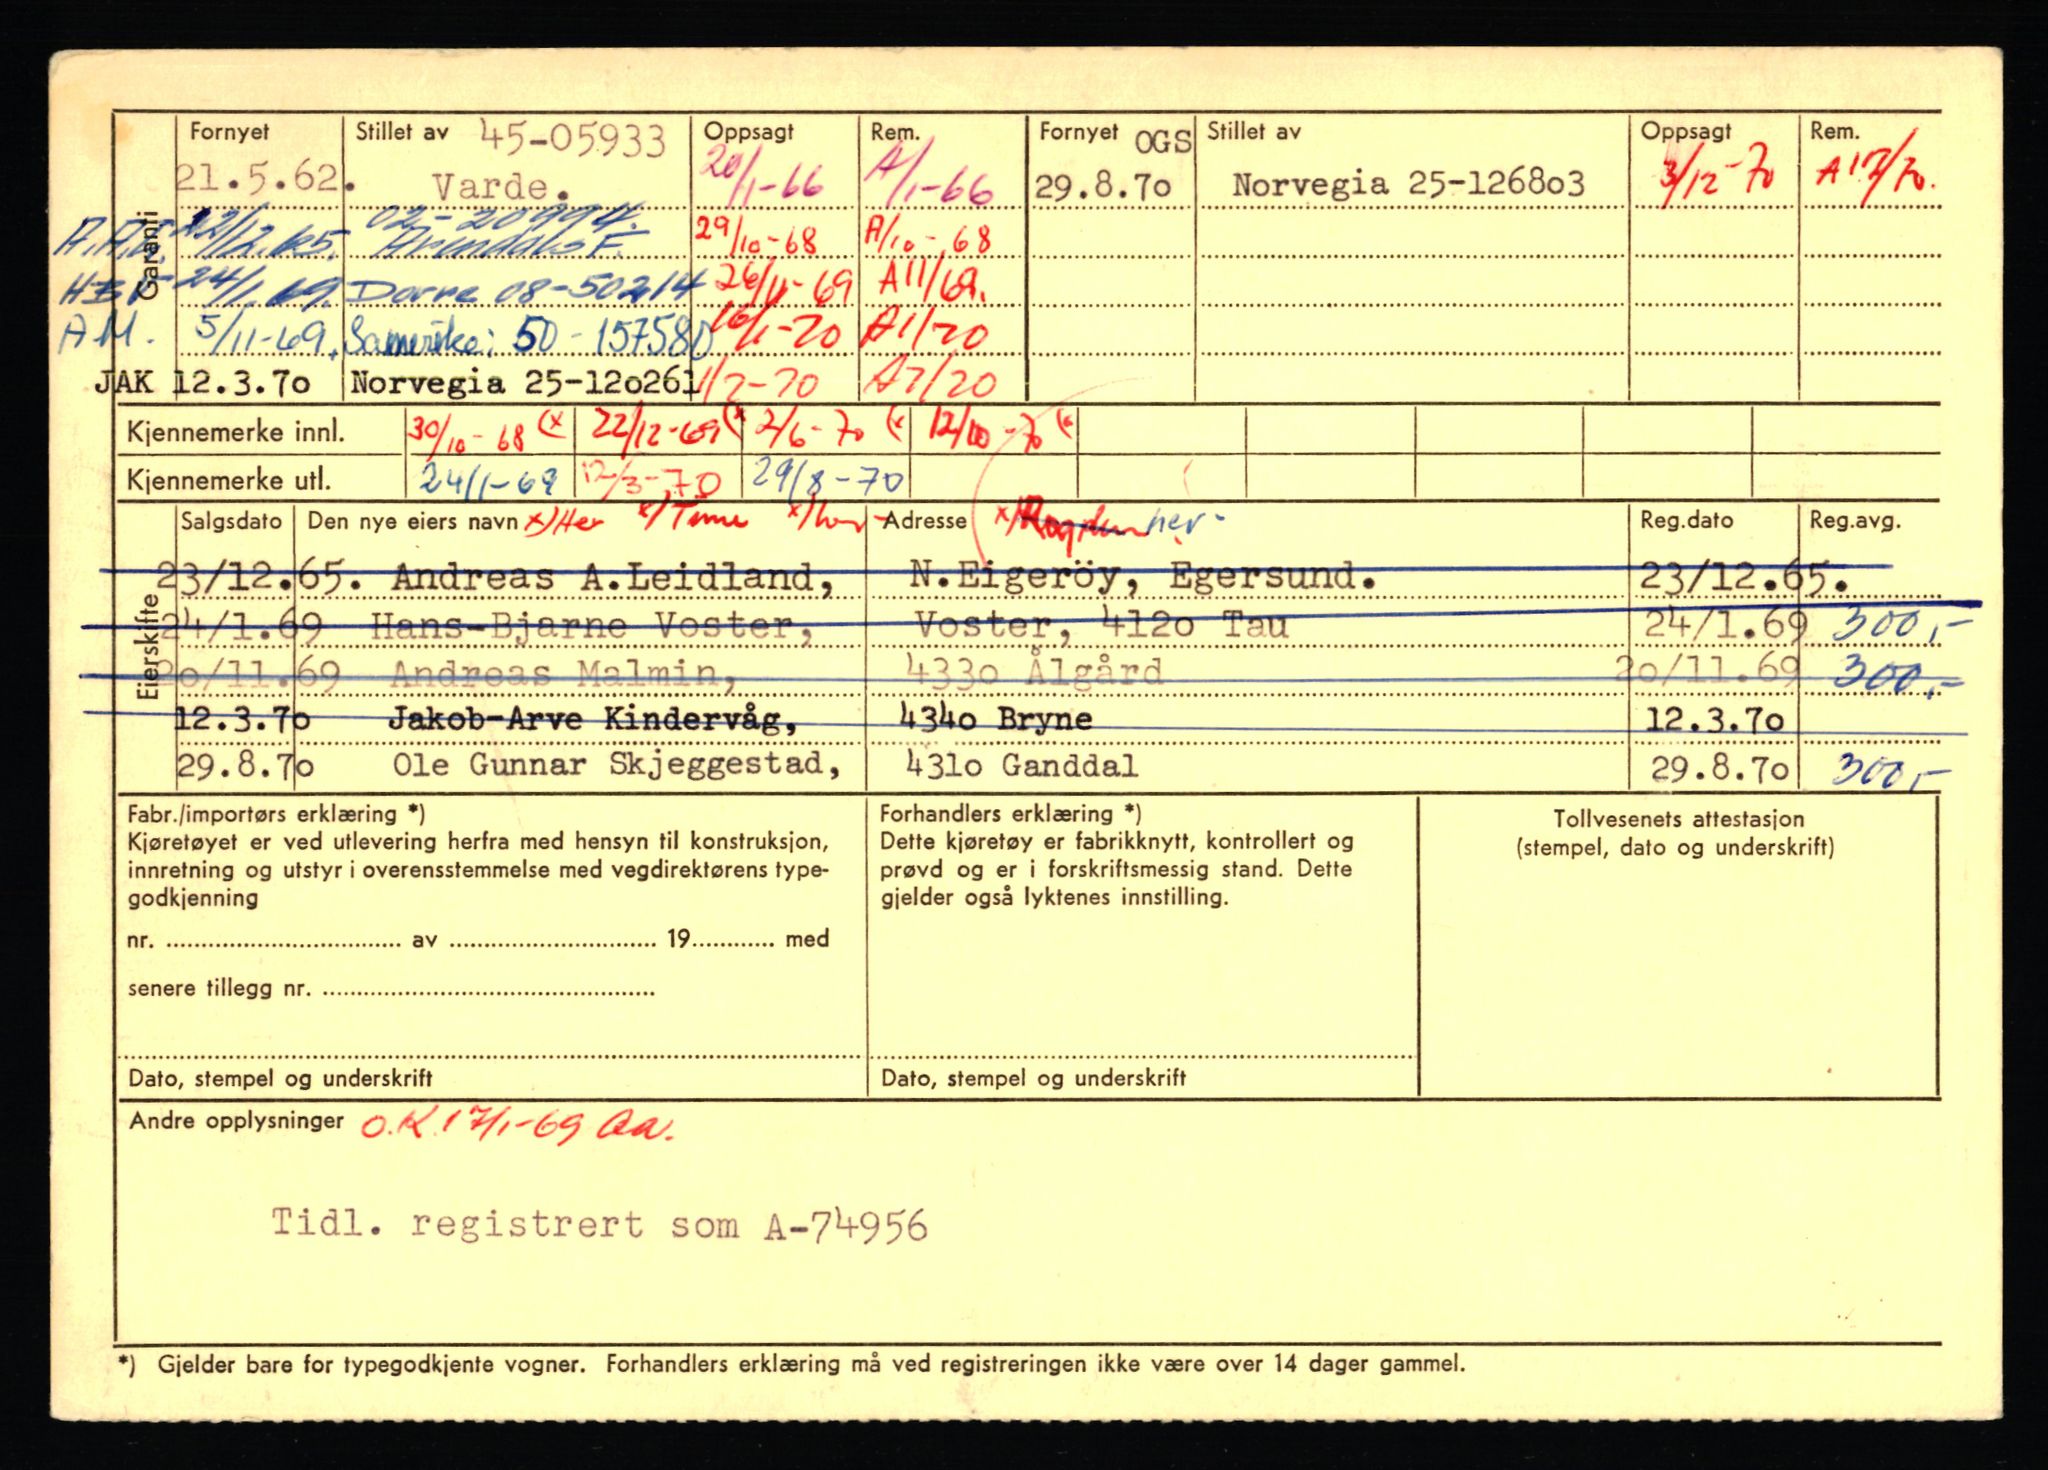 Garanti
Fornyet Stillet av 45-05933 Oppsagt Rem. Fornyet OGS Stillet av Oppsagt Rem.
21.5.62. Varde. 20/1-66 A/1-66 29.8.7o Norvegia 25-1268o3 3/12-70 A12/70.
A.A.L. 22/12.65. 02-20994. Arendals F. 29/10-68 A/10-68
H B V 24/1.69. Dovre 08-50214 26/11-69 A11/69.
A.M. 5/11-69. Samvirke: 50-157580 16/1-70 A1/70
JAK 12.3.7o Norvegia 25-12o261 1/7-70 A7/70
Kjennemerke innl. 30/10-68 (x 22/12-69 (x 2/6-70 (x 12/10-70 (x
Kjennemerke utl. 24/1-69 12/3-70 29/8-70
Eierskifte
Salgsdato Den nye eiers navn x/Her x/Time x/ Adresse x/ her- Reg.dato Reg.avg.
23/12.65. Andreas A.Leidland, N.Eigeröy, Egersund. 23/12.65.
24/1.69 Hans-Bjarne Voster, Voster, 412o Tau 24/1.69 300,-
2o/11.69 Andreas Malmin, 433o Ålgård 2o/11.69 300,-
12.3.7o Jakob-Arve Kindervåg, 434o Bryne 12.3.7o
29.8.7o Ole Gunnar Skjeggestad, 431o Ganddal 29.8.7o 300,-
Fabr./importørs erklæring *)
Kjøretøyet er ved utlevering herfra med hensyn til konstruksjon,
innretning og utstyr i overensstemmelse med vegdirektørens type-
godkjenning
nr. .................... av .................... 19............ med
senere tillegg nr. ....................
Dato, stempel og underskrift
Forhandlers erklæring *)
Dette kjøretøy er fabrikknytt, kontrollert og
prøvd og er i forskriftsmessig stand. Dette
gjelder også lyktenes innstilling.
Dato, stempel og underskrift
Tollvesenets attestasjon
(stempel, dato og underskrift)
Andre opplysninger O.K. 17/1-69 Aa.
Tidl. registrert som A-74956
*) Gjelder bare for typegodkjente vogner. Forhandlers erklæring må ved registreringen ikke være over 14 dager gammel.